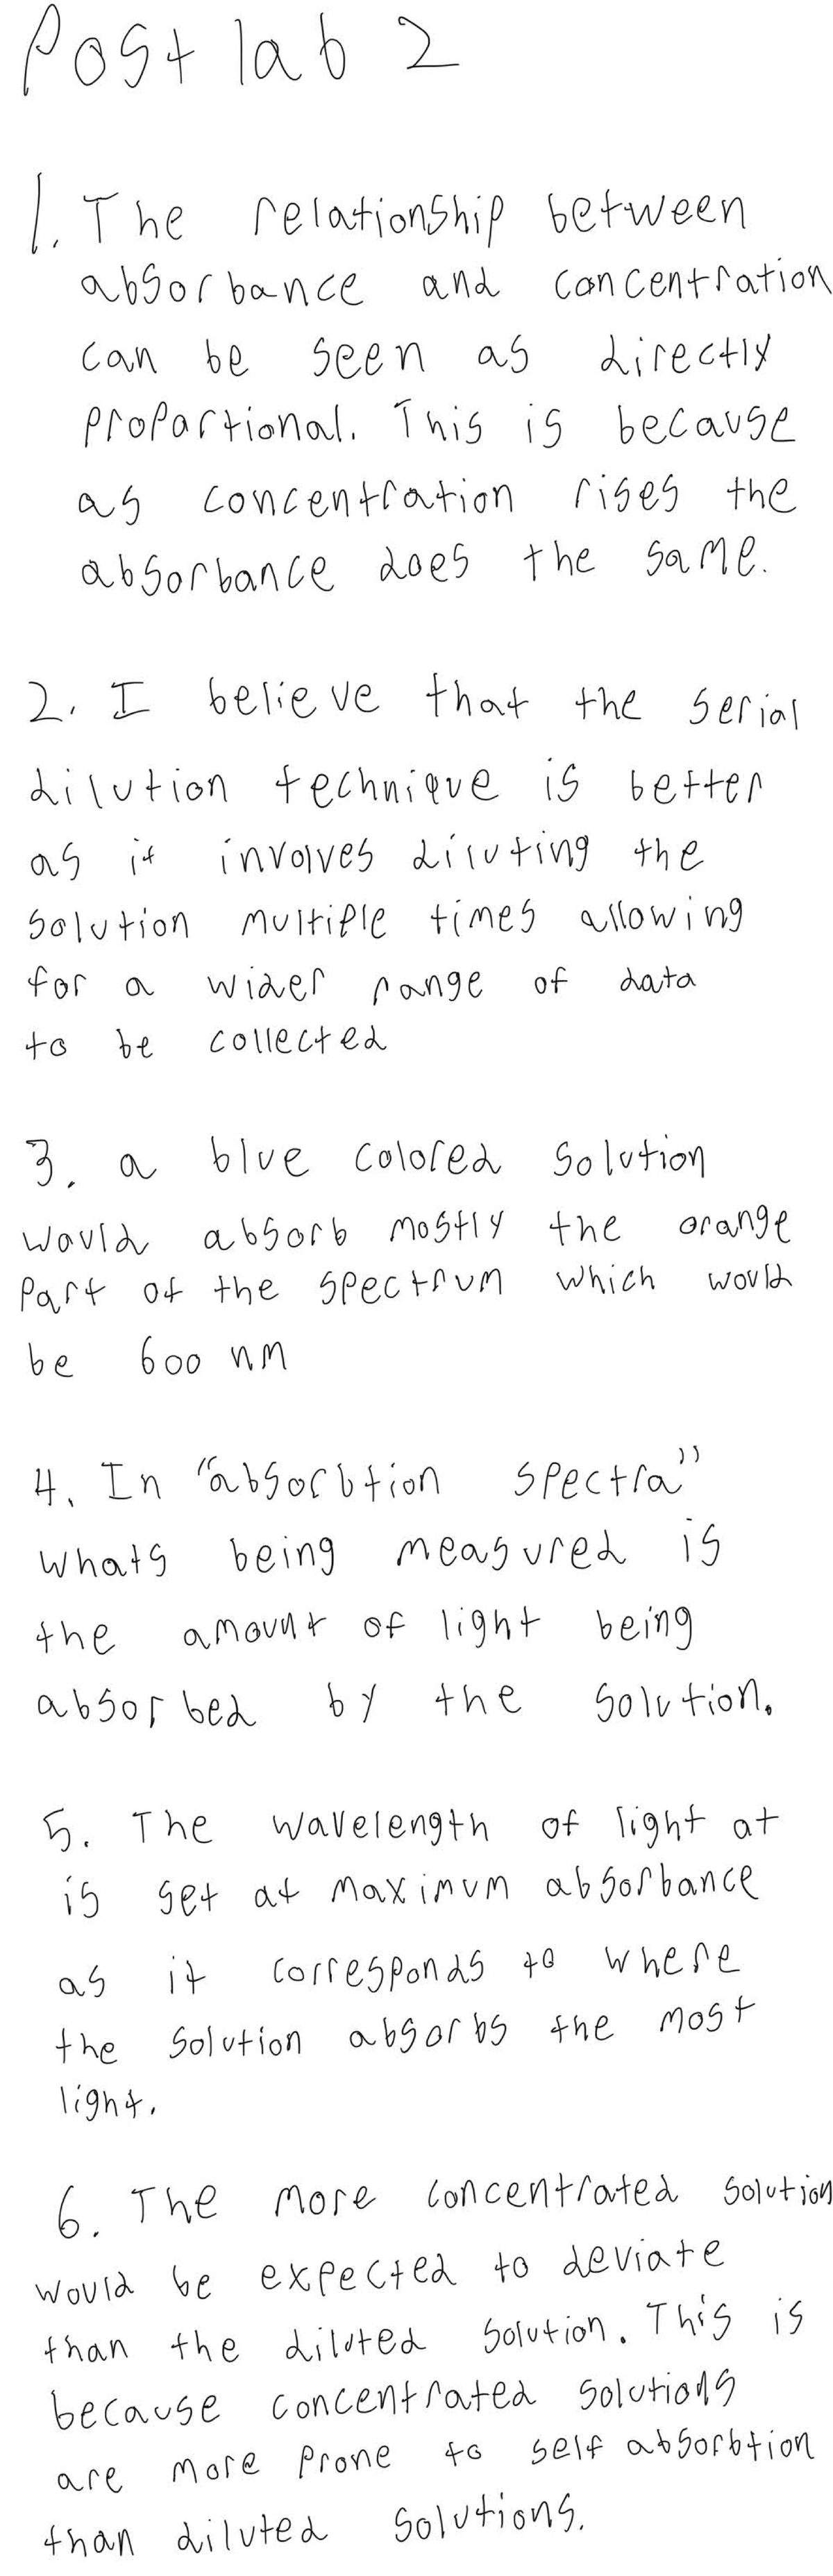 Post lab 2
1. The relationship between
absorbance and concentration
can be seen as directly
proportional. This is because
as concentration rises the
absorbance does the same.
2. I believe that the serial
dilution technique is better
as it involves diluting the
solution multiple times allowing
for a wider range of data
to be collected
3. a blue colored solution
would absorb mostly the orange
part of the spectrum which would
be 600 nm
4. In "absorbtion spectra"
whats being measured is
the amount of light being
absorbed by the solution.
5. The wavelength of light at
is set at maximum absorbance
as it corresponds to where
the solution absorbs the most
light.
6. The more concentrated solution
would be expected to deviate
than the diluted solution. This is
because concentrated solutions
are more prone to self absorbtion
than diluted solutions.